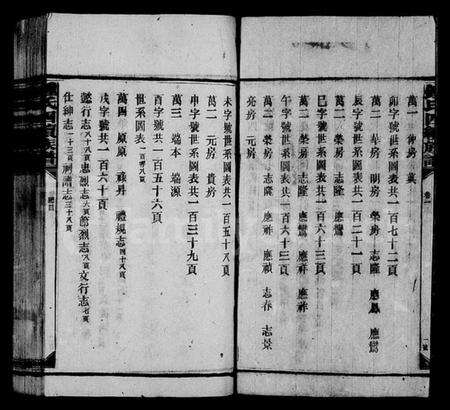 萬一
卯字號世系圖表共一百七十二頁
萬二 華房 明房 榮房 志隆 應鳳 應鸞
辰字號世系圖表共一百二十一頁
萬二 榮房 志隆 應鸞
巳字號世系圖表共一百六十三頁
萬二 榮房 志隆 應鸞 應祥
午字號世系圖表共一百六十三頁
萬二 榮房 志隆 應祥 應禎 志春 志景
亮房 元房
未字號世系圖表共一百五十八頁
萬二 元房 貴房
申字號世系圖表共一百三十九頁
萬三 端本 端源
酉字號世系圖表共一百五十六頁
世系圖表一百十八頁
萬四 原 祥昇 禮規志四十八頁
戌字號共一百六十頁
懿行志 忠烈志 節烈志 文行志七頁
仕紳志二十三頁 志三十八頁
卷一